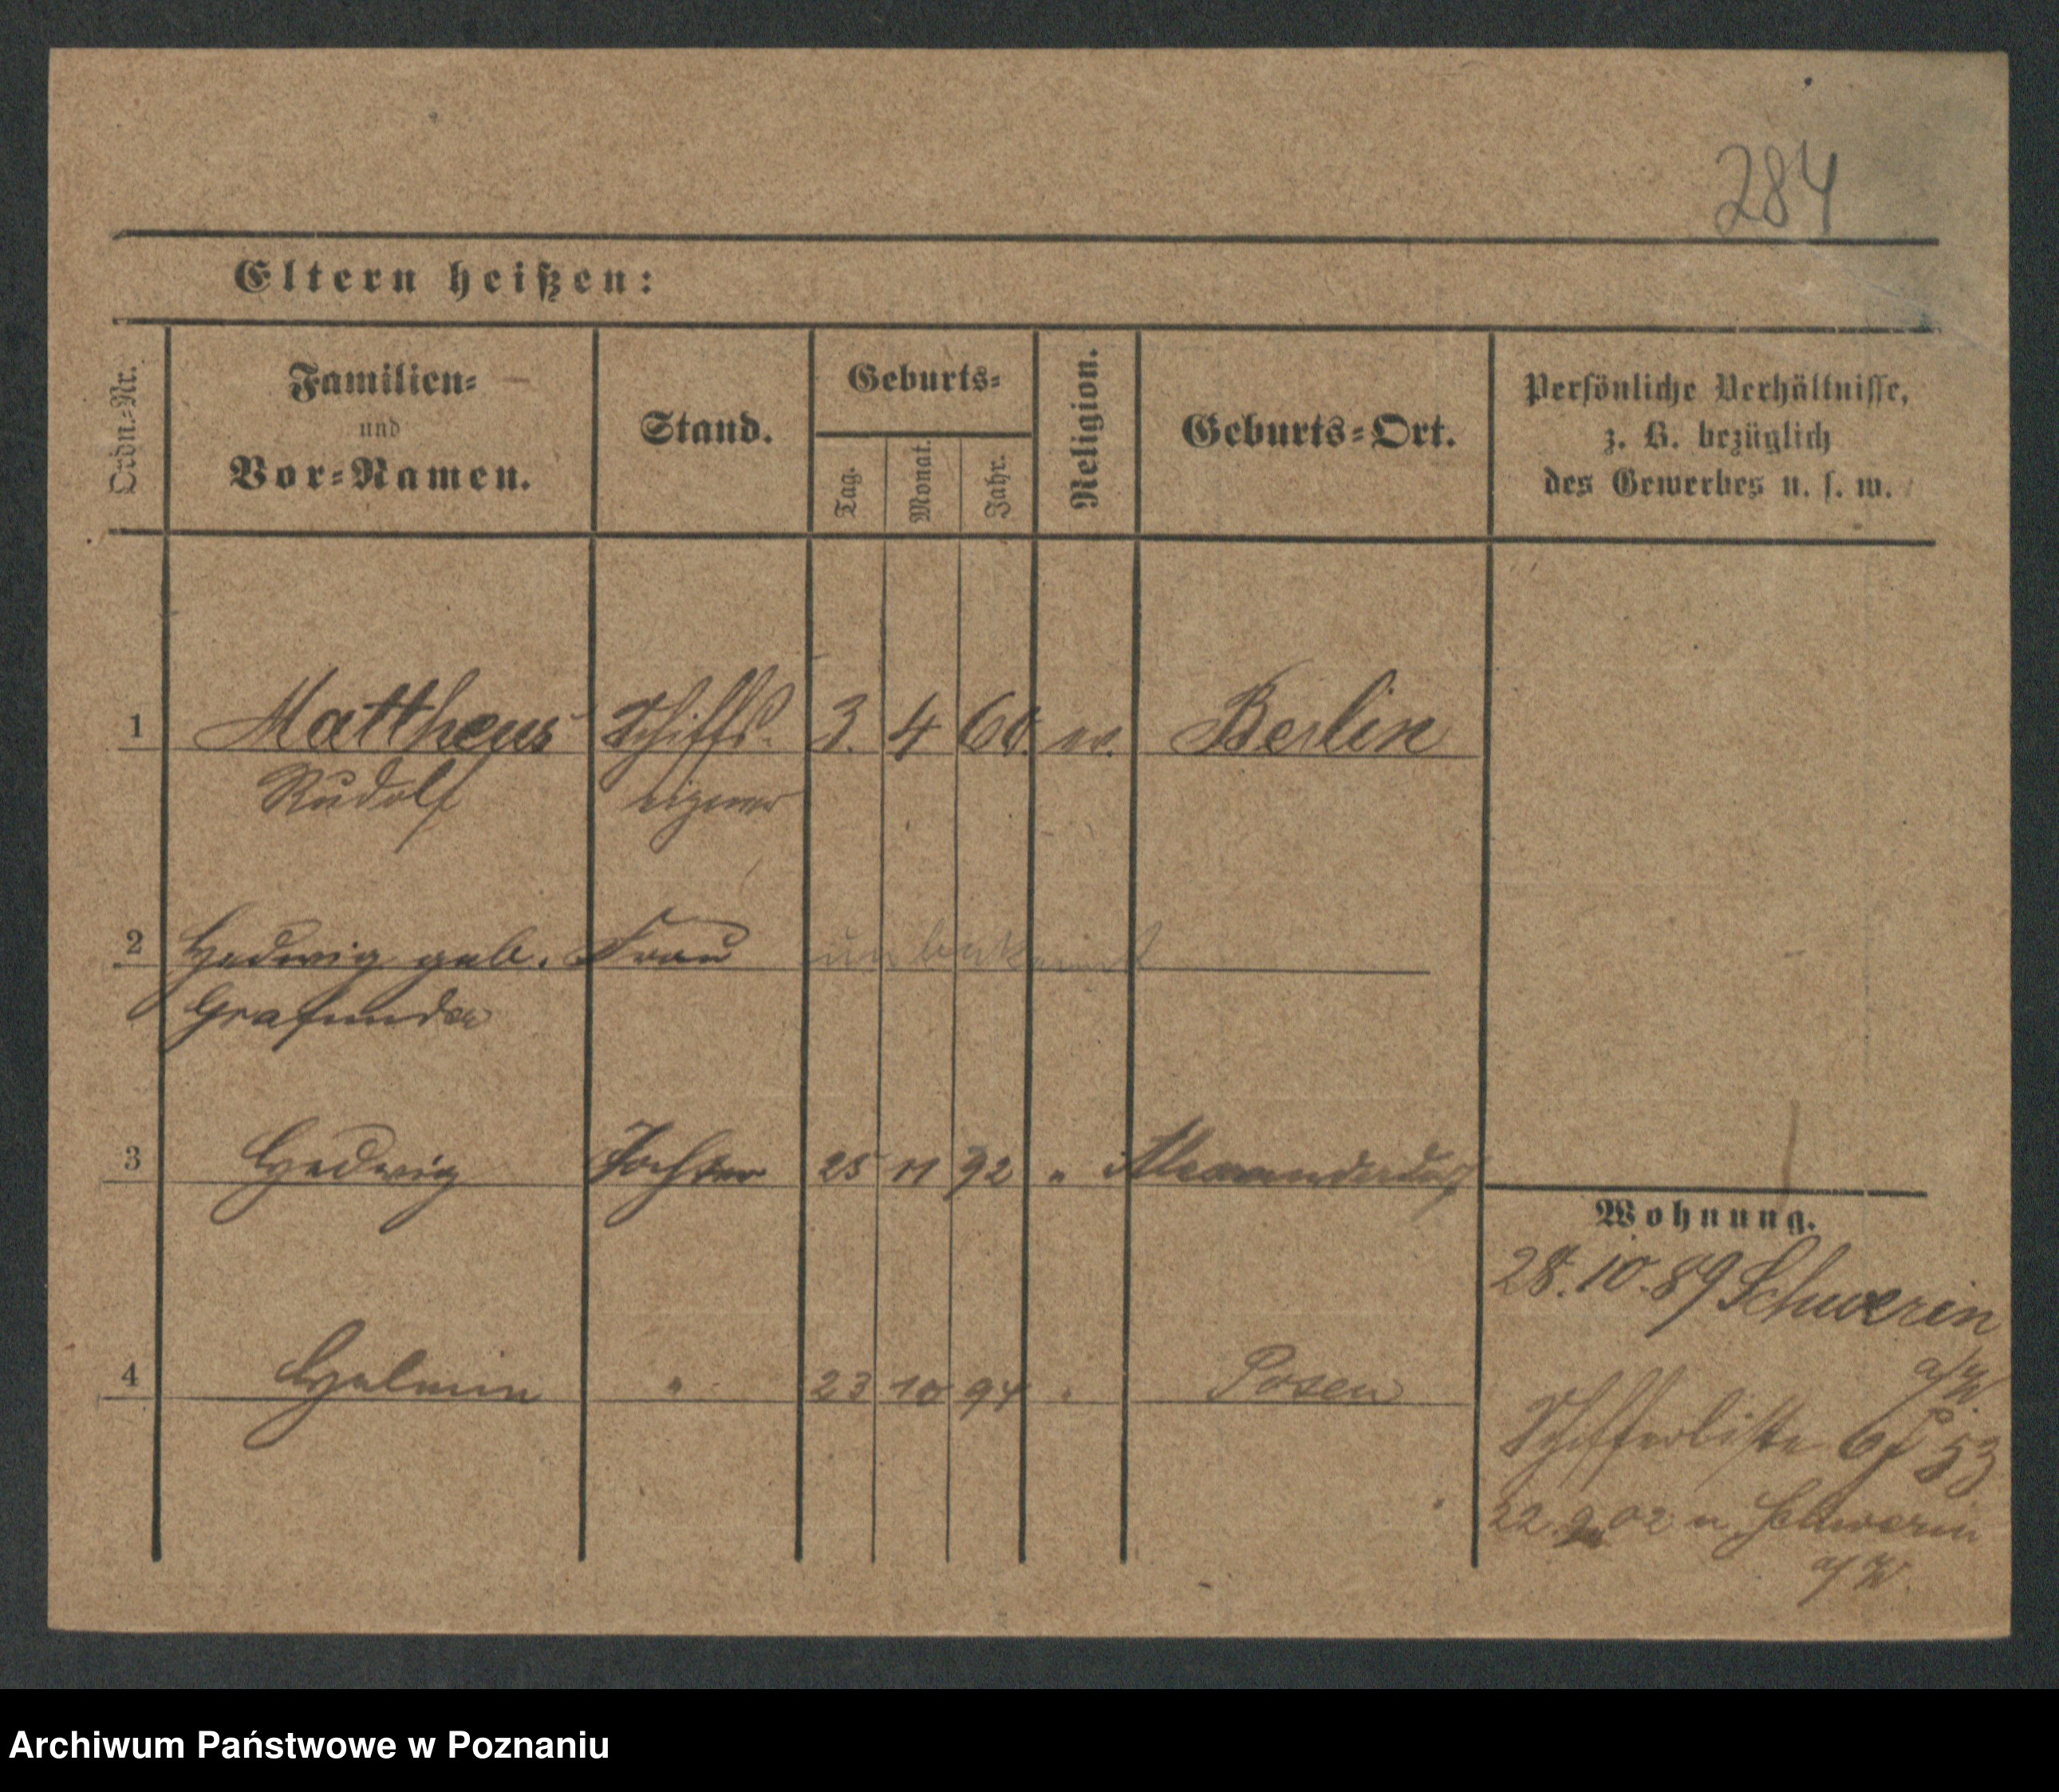 284
Eltern heißen:
Ordn.-Nr.
Familien-
und
Vor-Namen.
Stand.
Geburts-
Tag.
Monat.
Jahr.
Religion.
Geburts-Ort.
Persönliche Verhältnisse,
z. B. bezüglich
des Gewerbes u. s. w.
1 Mattheus Schiffs- 3. 4 60. ev. Berlin
Rudolf eigner
2 Hedwig geb. Frau unbekannt
Grafunder
3 Hedwig Tochter 25 11 92 " Alexanderdorf
Wohnung.
28.10.89 Schwerin
a/W
4 " 23 10 94 " Posen
Schifferliste 53
22. 02 n. Schwerin
a/W.
Archiwum Państwowe w Poznaniu